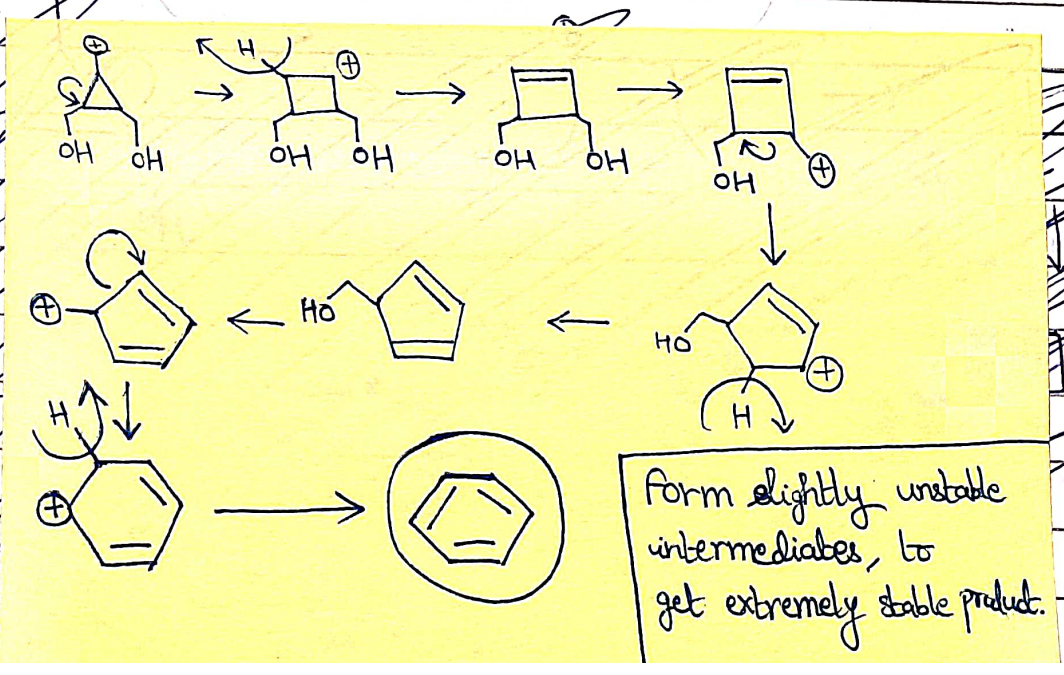 ⊕
H ⊕
OH OH OH OH OH OH OH ⊕
⊕ HO HO ⊕
H H
⊕
Form slightly unstable
intermediates, to
get extremely stable product.